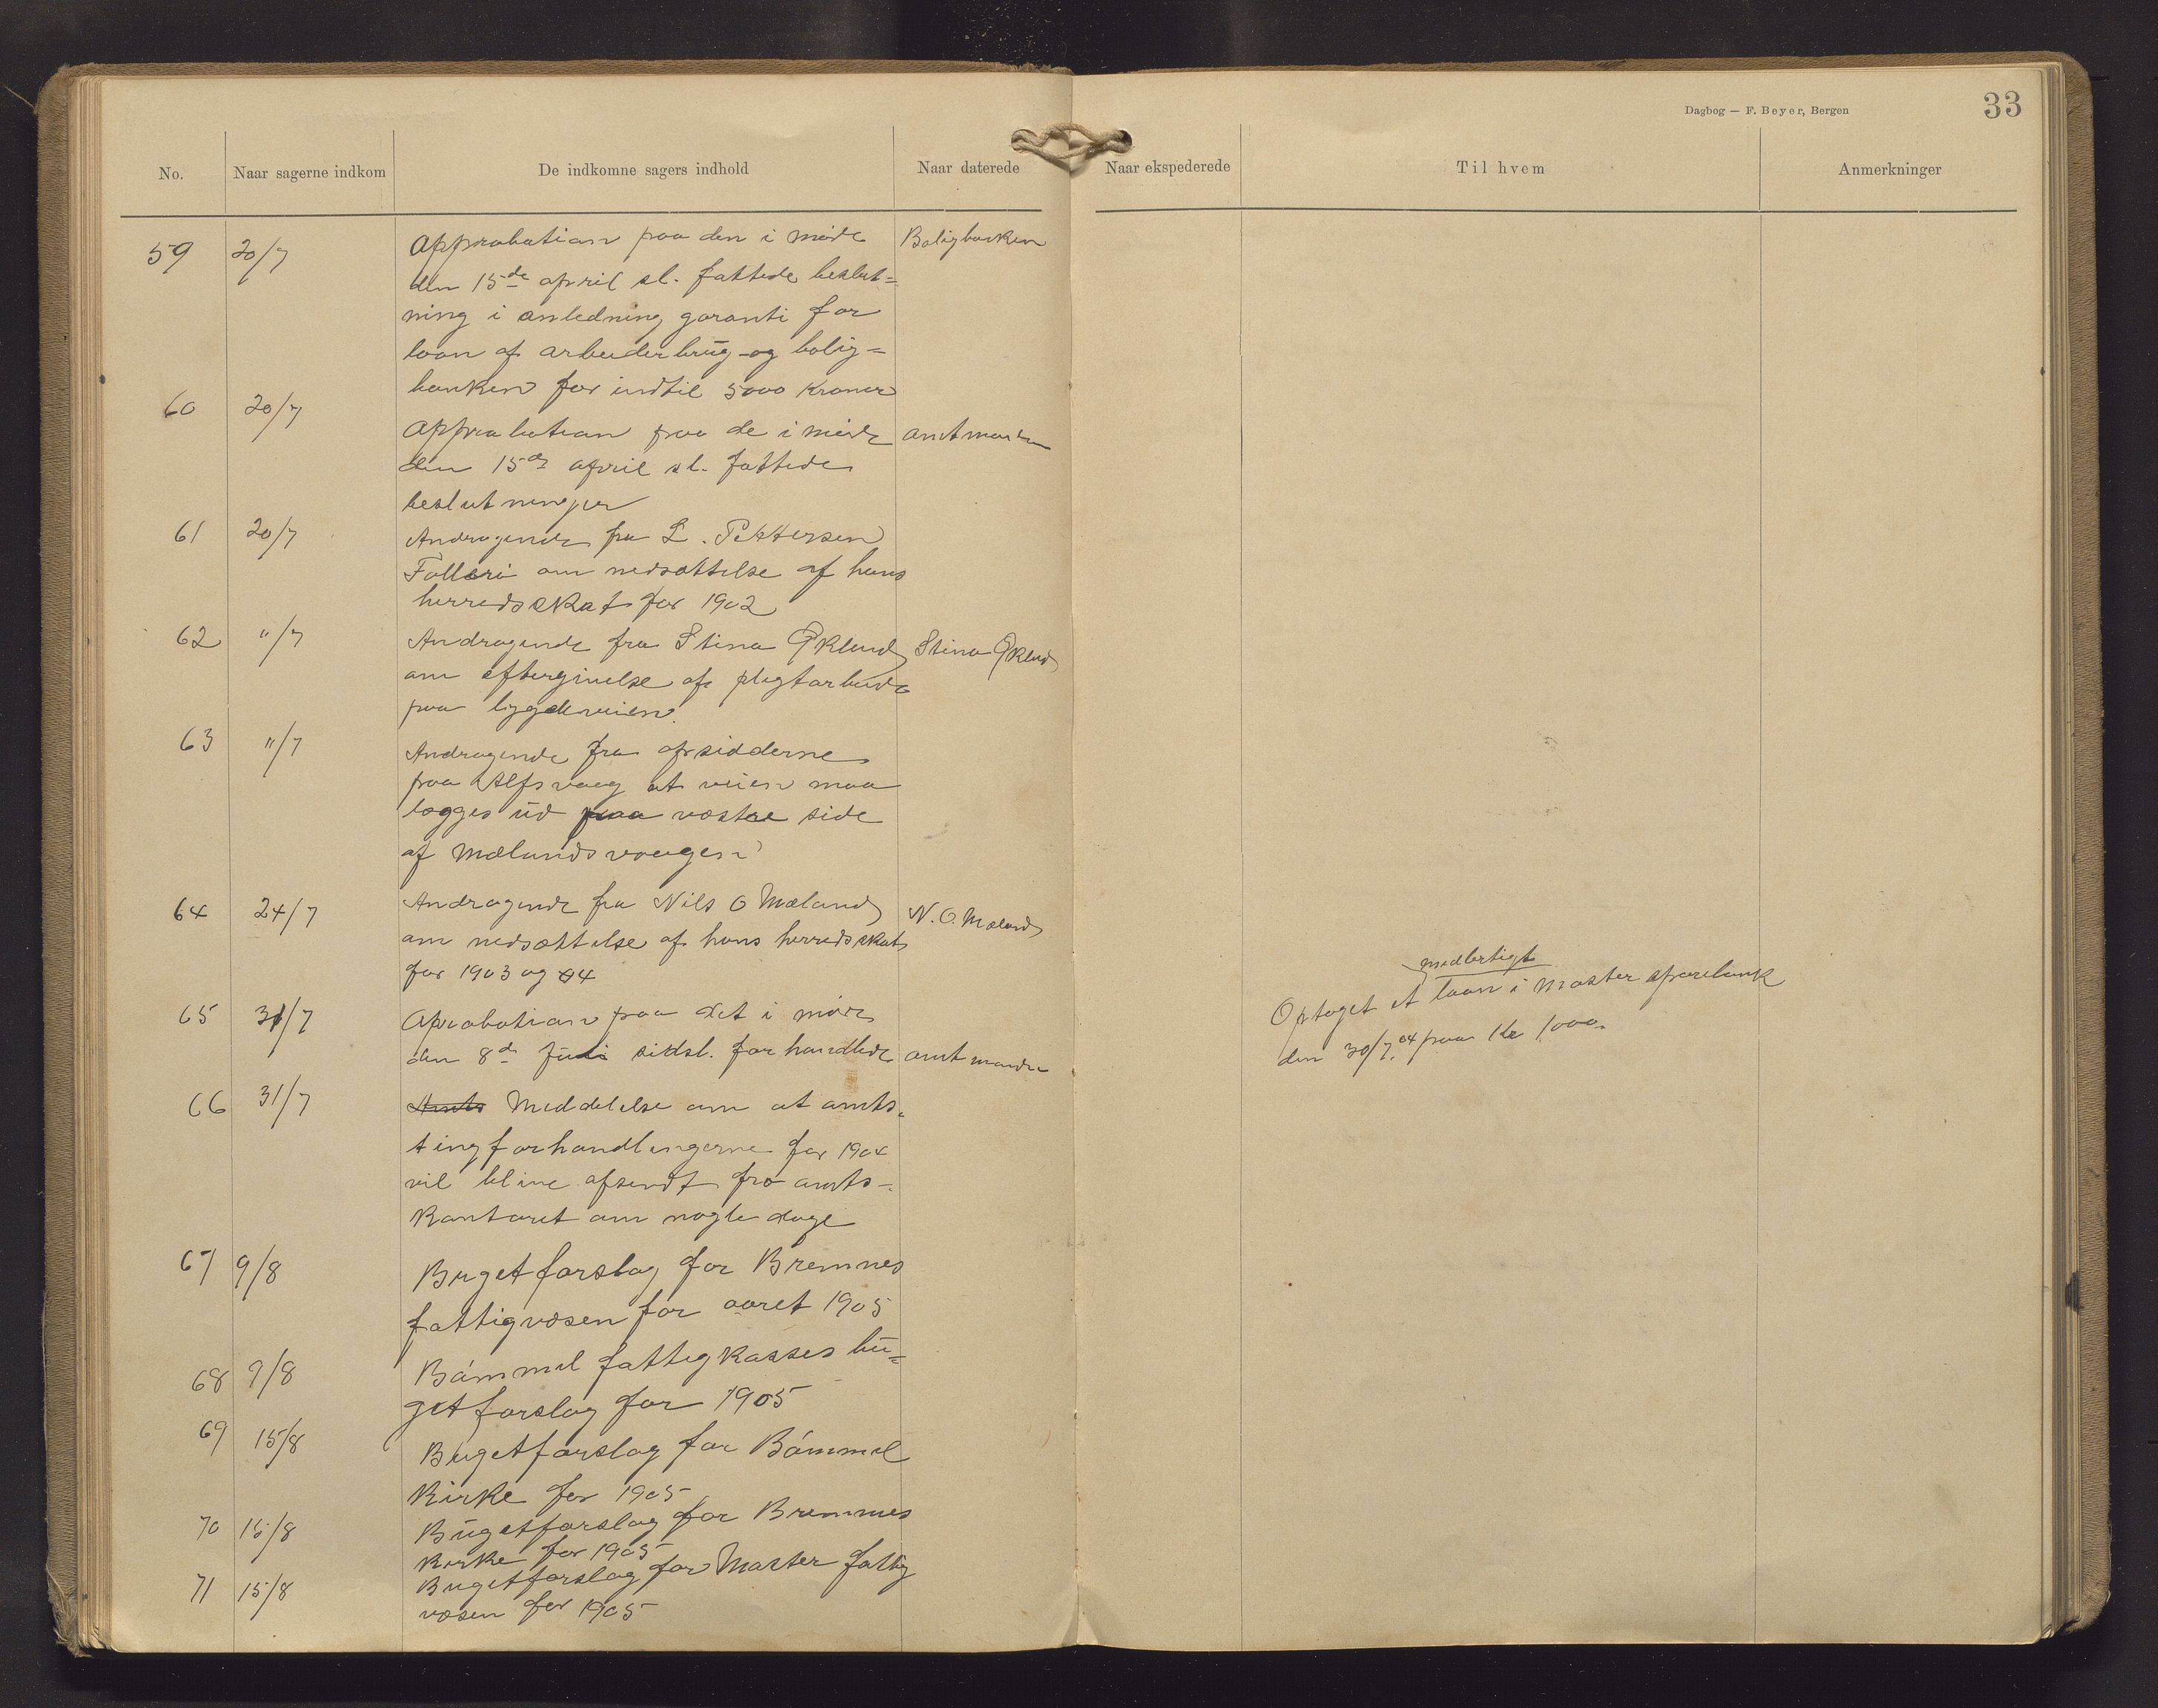 Dagbog — F. Beyer, Bergen
33
No.
Naar sagerne indkom
De indkomne sagers indhold
Naar daterede
Naar ekspederede
Til hvem
Anmerkninger
59 20/7 Approbation paa den i møde Boligbanken
den 15de april sl. fattede beslut=
ning i anledning garanti for
laan af arbeiderbrug- og bolig=
banken for indtil 5000 kroner
60 20/7
Approbation paa de i møde amtmanden
den 15de april sl. fattede
beslutninger
61 20/7 Andragende fra L. Pettersen
Folleri om nedsættelse af hans
herredsskat for 1902
62 "/7 Andragende fra Stina Øklund Stina Øklund
om eftergivelse af pligtarbeide
paa bygdeveien.
63 "/7 Andragende fra opsidderne
paa Alfsvaag at veien maa
lægges ud paa vestre side
af Mælandsvaagen
64 24/7 Andragende fra Nils O Mæland N. O. Mæland
om nedsættelse af hans herredsskat
for 1903 og 04
65 31/7 Aprobation paa det i møde
den 8de Juli sidsl. forhandlede amtmanden
midlertigt
Optaget et laan i Moster sparebank
den 30/7.04 paa Kr 1000.
66 31/7 Amts Meddelelse om at amts-
tingforhandlingerne for 1904
vil blive afsendt fra amts-
kontoret om nogle dage
67 9/8 Bugetforslag for Bremnes
fattigvæsen for aaret 1905
68 9/8 Bømmel fattigkasses bu=
getforslag for 1905
69 15/8 Bugetforslag for Bømmel
Kirke for 1905
70 15/8 Bugetforslag for Bremnes
kirke for 1905
71 15/8 Bugetforslag for Moster fattig
væsen for 1905